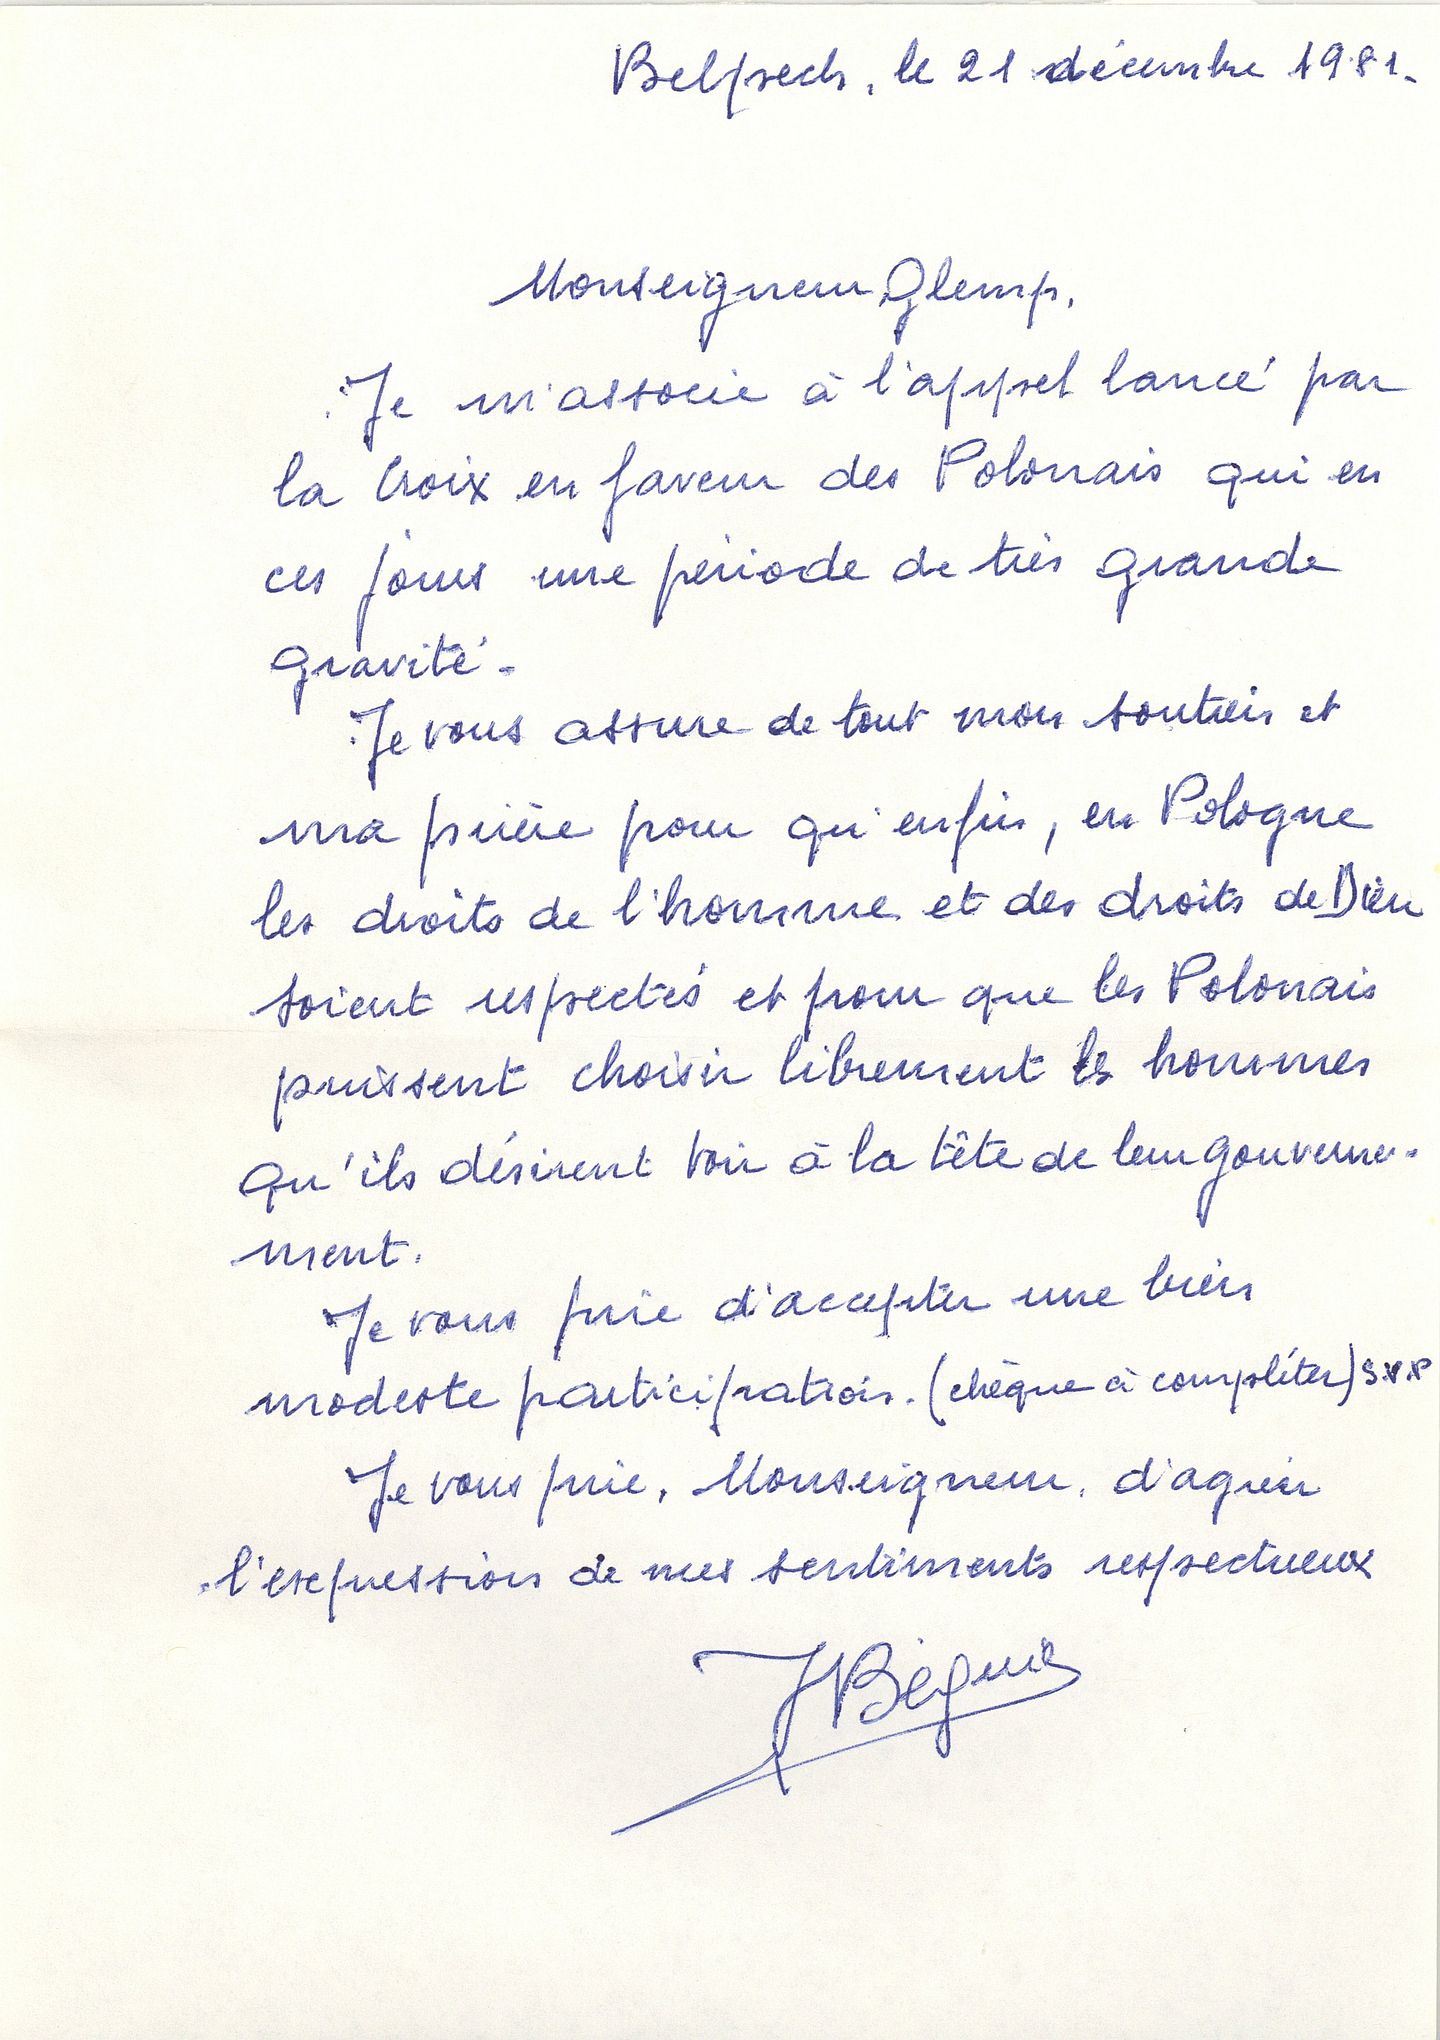 Belpech, le 21 décembre 1981.
Monseigneur Glemp,
Je m'associe à l'appel lancé par
la Croix en faveur des Polonais qui en
ces jours une période de très grande
gravité.
Je vous assure de tout mon soutien et
ma prière pour qu'enfin, en Pologne
les droits de l'homme et des droits de Dieu
soient respectés et pour que les Polonais
puissent choisir librement les hommes
qu'ils désirent voir à la tête de leur gouverne-
ment.
Je vous prie d'accepter une bien
modeste participation. (chèque à compléter) S.V.P
Je vous prie, Monseigneur, d'agréer
l'expression de mes sentiments respectueux
J Béguin